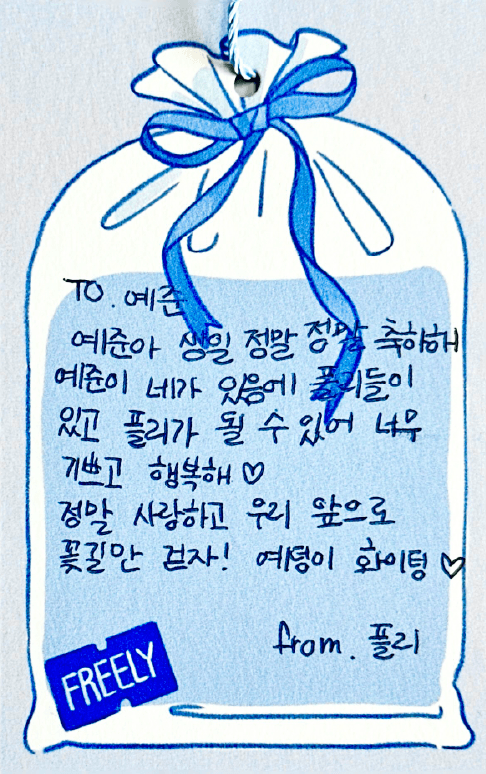 TO. 예준
예준아 생일 정말 정말 축하해
예준이 네가 있음에 플리들이
있고 플리가 될 수 있어 너무
기쁘고 행복해 ♡
정말 사랑하고 우리 앞으로
꽃길만 걷자! 예덩이 화이팅 ♡
from. 플리
FREELY